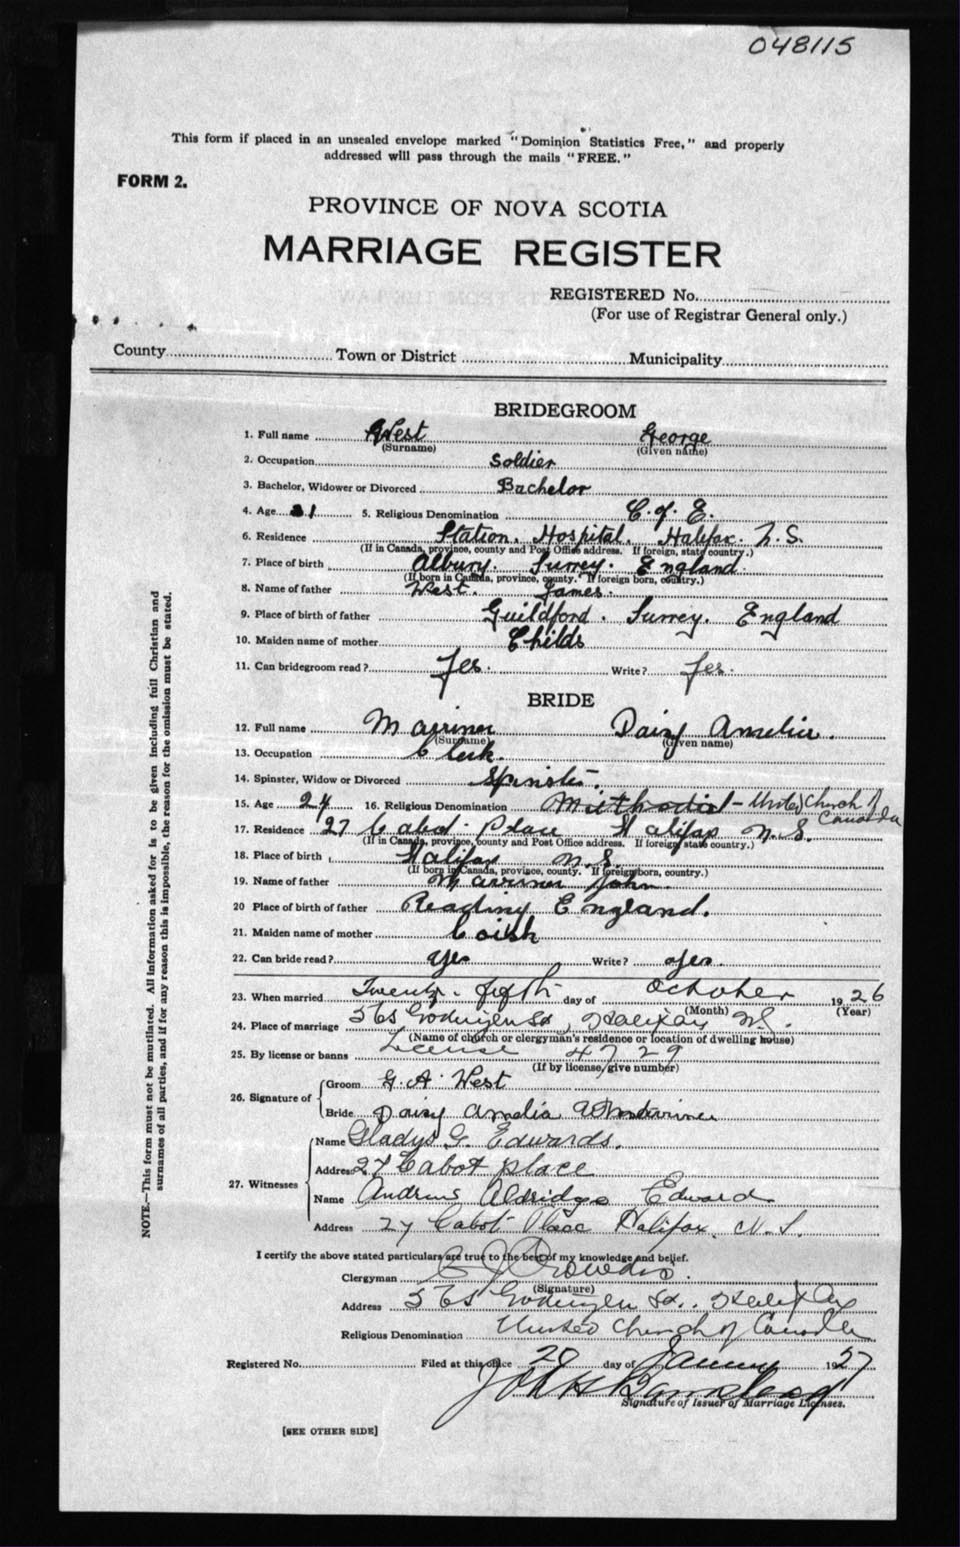 048115
This form if placed in an unsealed envelope marked "Dominion Statistics Free," and properly
addressed will pass through the mails "FREE."
FORM 2.
PROVINCE OF NOVA SCOTIA
MARRIAGE REGISTER
REGISTERED No.
(For use of Registrar General only.)
County Town or District Municipality
BRIDEGROOM
1. Full name West George
(Surname) (Given name)
2. Occupation Soldier
3. Bachelor, Widower or Divorced Bachelor
4. Age 31 5. Religious Denomination C. of E.
6. Residence Station. Hospital. Halifax. N.S.
(If in Canada, province, county and Post Office address. If foreign, state country.)
7. Place of birth Albury. Surrey. England.
(If born in Canada, province, county. If foreign born, country.)
8. Name of father West. James.
9. Place of birth of father Guildford. Surrey. England
10. Maiden name of mother Childs
11. Can bridegroom read? Yes. Write? Yes.
BRIDE
12. Full name Marriner Daisy Amelia.
(Surname) (Given name)
13. Occupation Clerk.
14. Spinster, Widow or Divorced Spinster.
15. Age 24 16. Religious Denomination Methodist - United Church of
Canada
17. Residence 27 Cabot Place Halifax N.S.
(If in Canada, province, county and Post Office address. If foreign state country.)
18. Place of birth Halifax N.S.
(If born in Canada, province, county. If foreign born, country.)
19. Name of father Marriner John.
20 Place of birth of father Reading England.
21. Maiden name of mother Coish
22. Can bride read? Yes Write? Yes.
23. When married Twenty-fifth day of October 1926
(Month) (Year)
24. Place of marriage 565 Gottingen St, Halifax N.S.
(Name of church or clergyman's residence or location of dwelling house)
25. By license or banns License 4729
(If by license, give number)
26. Signature of Groom G. A. West
Bride Daisy Amelia Marriner
27. Witnesses Name Gladys G. Edwards.
Address 27 Cabot place
Name Andrew Aldridge Edwards
Address 27 Cabot Place Halifax, N.S.
I certify the above stated particulars are true to the best of my knowledge and belief.
Clergyman Crowdis.
(Signature)
Address 565 Gottingen St., Halifax
Religious Denomination United Church of Canada
Registered No. Filed at this office 20 day of January 1927
Signature of Issuer of Marriage Licenses.
[SEE OTHER SIDE]
NOTE.—This form must not be mutilated. All information asked for is to be given including full Christian and
surnames of all parties, and if for any reason this is impossible, the reason for the omission must be stated.